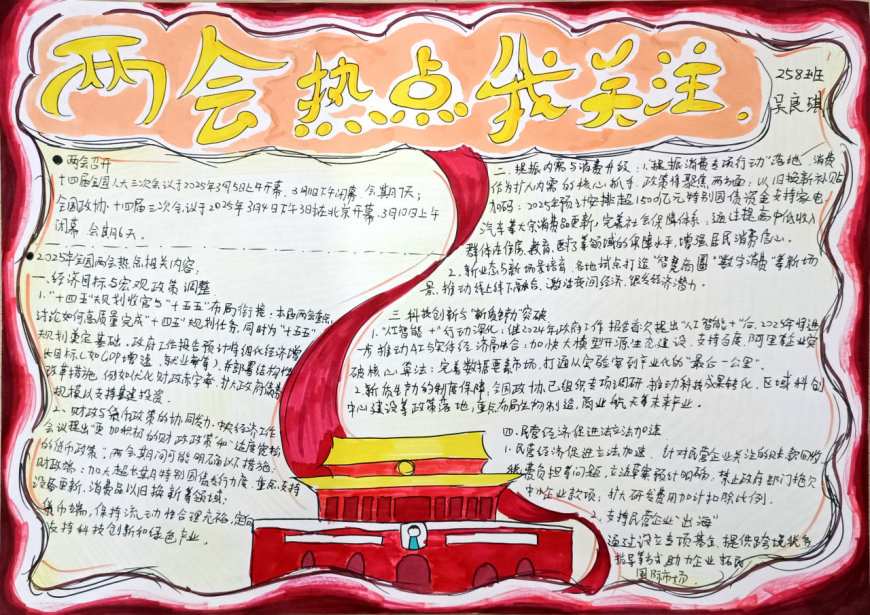 两会热点我关注
258班
吴良琪
●两会召开
十四届全国人大三次会议于2025年3月5日上午开幕,3月11日下午闭幕,会期7天;
全国政协十四届三次会议于2025年3月4日下午3时在北京开幕,3月10日上午
闭幕,会期6天。
●2025年全国两会热点相关内容:
一.经济目标与宏观政策调整
1."十四五"规划收官与"十五五"布局衔接:本届两会重点
讨论如何高质量完成"十四五"规划任务,同时为"十五五"
规划奠定基础。政府工作报告预计将细化经济增
长目标(如GDP增速、就业等),并部署结构性
改革措施,例如优化财政赤字率、扩大政府债券
规模以支持基建投资。
2.财政与货币政策的协同发力:中央经济工作
会议提出"更加积极的财政政策"和"适度宽松
的货币政策",两会期间可能明确以下措施:
财政端:加大超长期特别国债发行力度,重点支持
设备更新、消费品以旧换新等领域;
货币端,保持流动性合理充裕,定向
支持科技创新和绿色产业。
二.提振内需与消费升级:1."提振消费专项行动"落地,消费
作为扩大内需的核心抓手,政策将聚焦两方面:以旧换新补贴
加码:2025年预计安排超1500亿元特别国债资金支持家电
汽车等大宗消费品更新,完善社会保障体系,通过提高中低收入
群体在住房、教育、医疗等领域的保障水平,增强居民消费信心。
2.新业态与新场景培育:各地试点打造"智慧商圈""数字消费"等新场
景,推动线上线下融合,激活夜间经济、银发经济潜力。
三.科技创新与"新质生产力"突破
1."人工智能+"行动深化:继2024年政府工作报告首次提出"人工智能+"后,2025年将进
一步推动AI与实体经济深度融合:加快大模型开源生态建设,支持百度、阿里等企业突
破核心算法;完善数据要素市场,打通从实验室到产业化的"最后一公里"。
2.新质生产力的制度保障:全国政协已组织专项调研,推动科技成果转化、区域科创
中心建设等政策落地,重点布局生物制造、商业航天等未来产业。
四.民营经济促进法立法加速
1.民营经济促进立法加速,针对民营企业关注的账款回收
税费负担等问题,立法草案预计明确:禁止政府部门拖欠
中小企业款项,扩大研发费用加计扣除比例。
2.支持民营企业"出海"
通过设立专项基金、提供跨境税务
指导等方式助力企业拓展
国际市场。